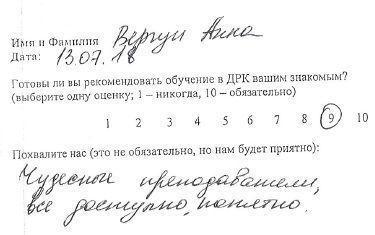 Имя и Фамилия Вергун Анна
Дата: 13.07.18
Готовы ли вы рекомендовать обучение в ДРК вашим знакомым?
(выберите одну оценку; 1 – никогда, 10 – обязательно)
1 2 3 4 5 6 7 8 9 10
Похвалите нас (это не обязательно, но нам будет приятно):
Чудесные преподаватели,
все доступно, понятно.